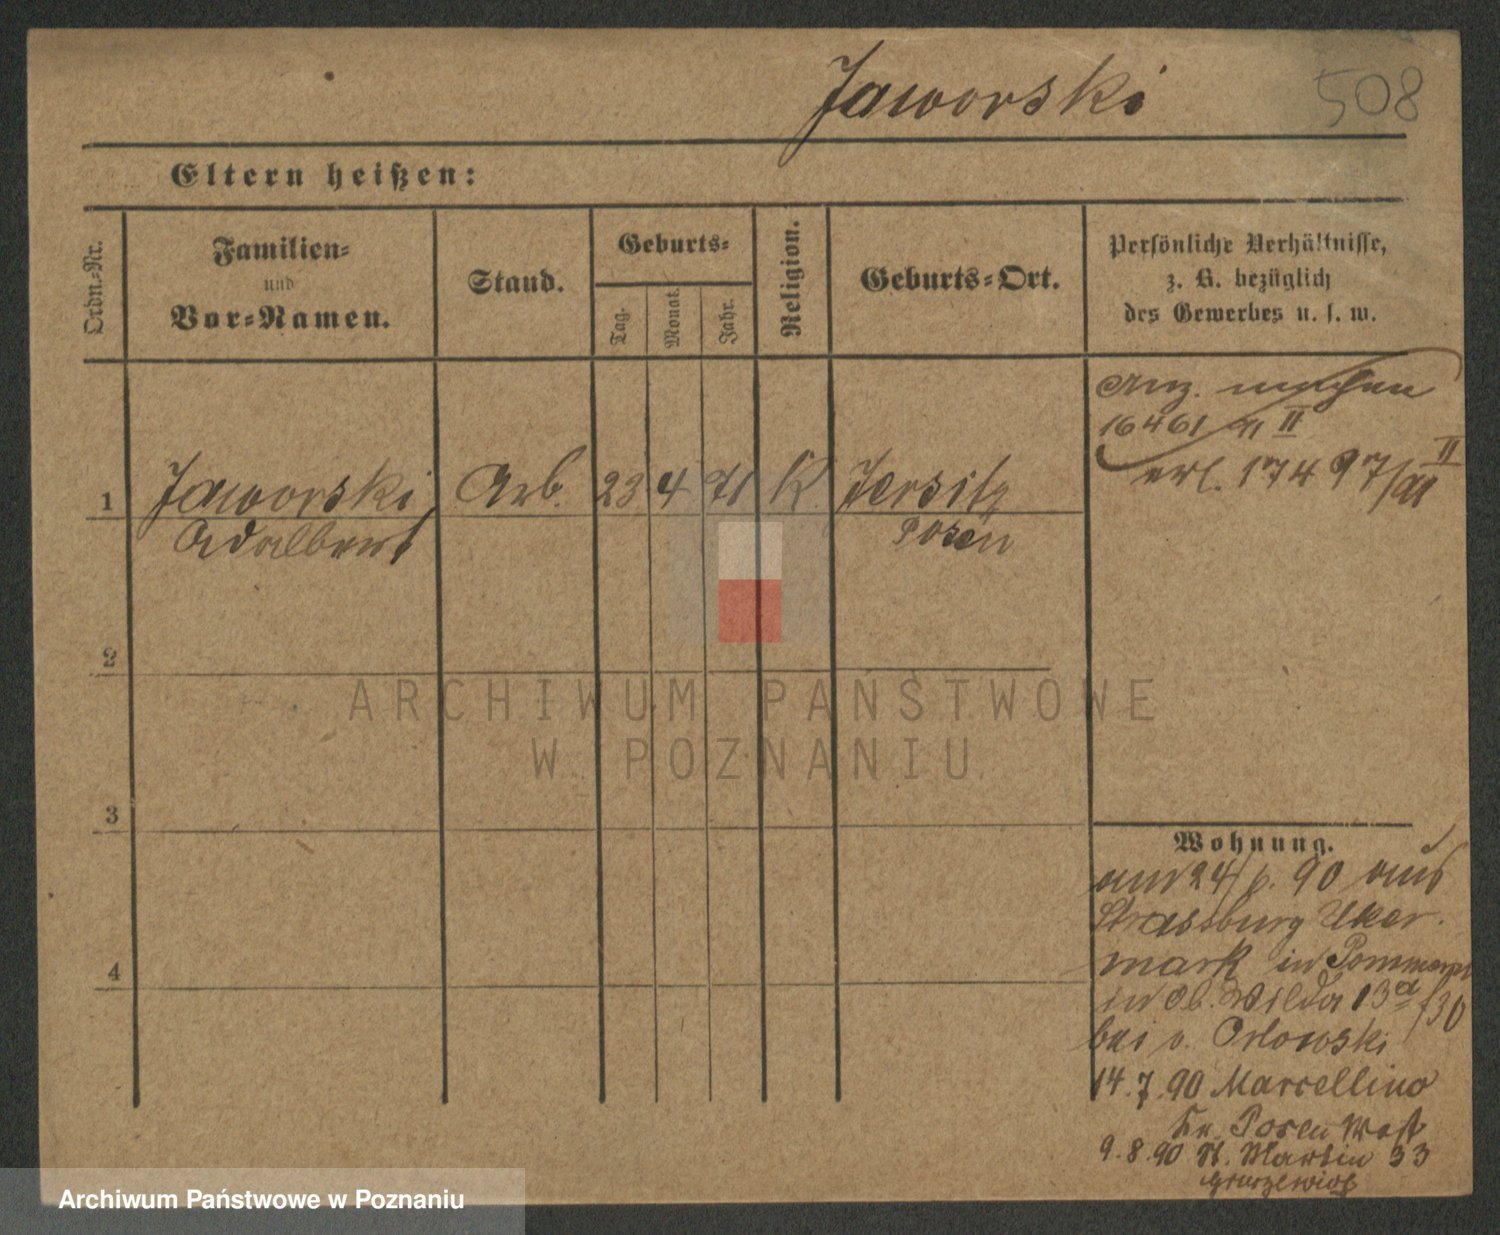 Jaworski 508
Eltern heißen:
Ordn.-Nr.
Familien-
und
Vor-Namen.
Stand.
Geburts-
Tag.
Monat.
Jahr.
Religion.
Geburts-Ort.
Persönliche Verhältnisse,
z. B. bezüglich
des Gewerbes u. s. w.
16461 II
erl. 17497 II
1 Jaworski Arb. 23 4 71 K. Jersitz
Adalbert Posen
2
3
4
ARCHIWUM PAŃSTWOWE
W POZNANIU
Wohnung.
am 24/6. 90 aus
Strassburg Uker.
mark in Pommern
in Ob. Wilda 13
bei v. Orlowski
14.7.90 Marcellino
Kr. Posen West
9.8.90 St. Martin 33
Archiwum Państwowe w Poznaniu